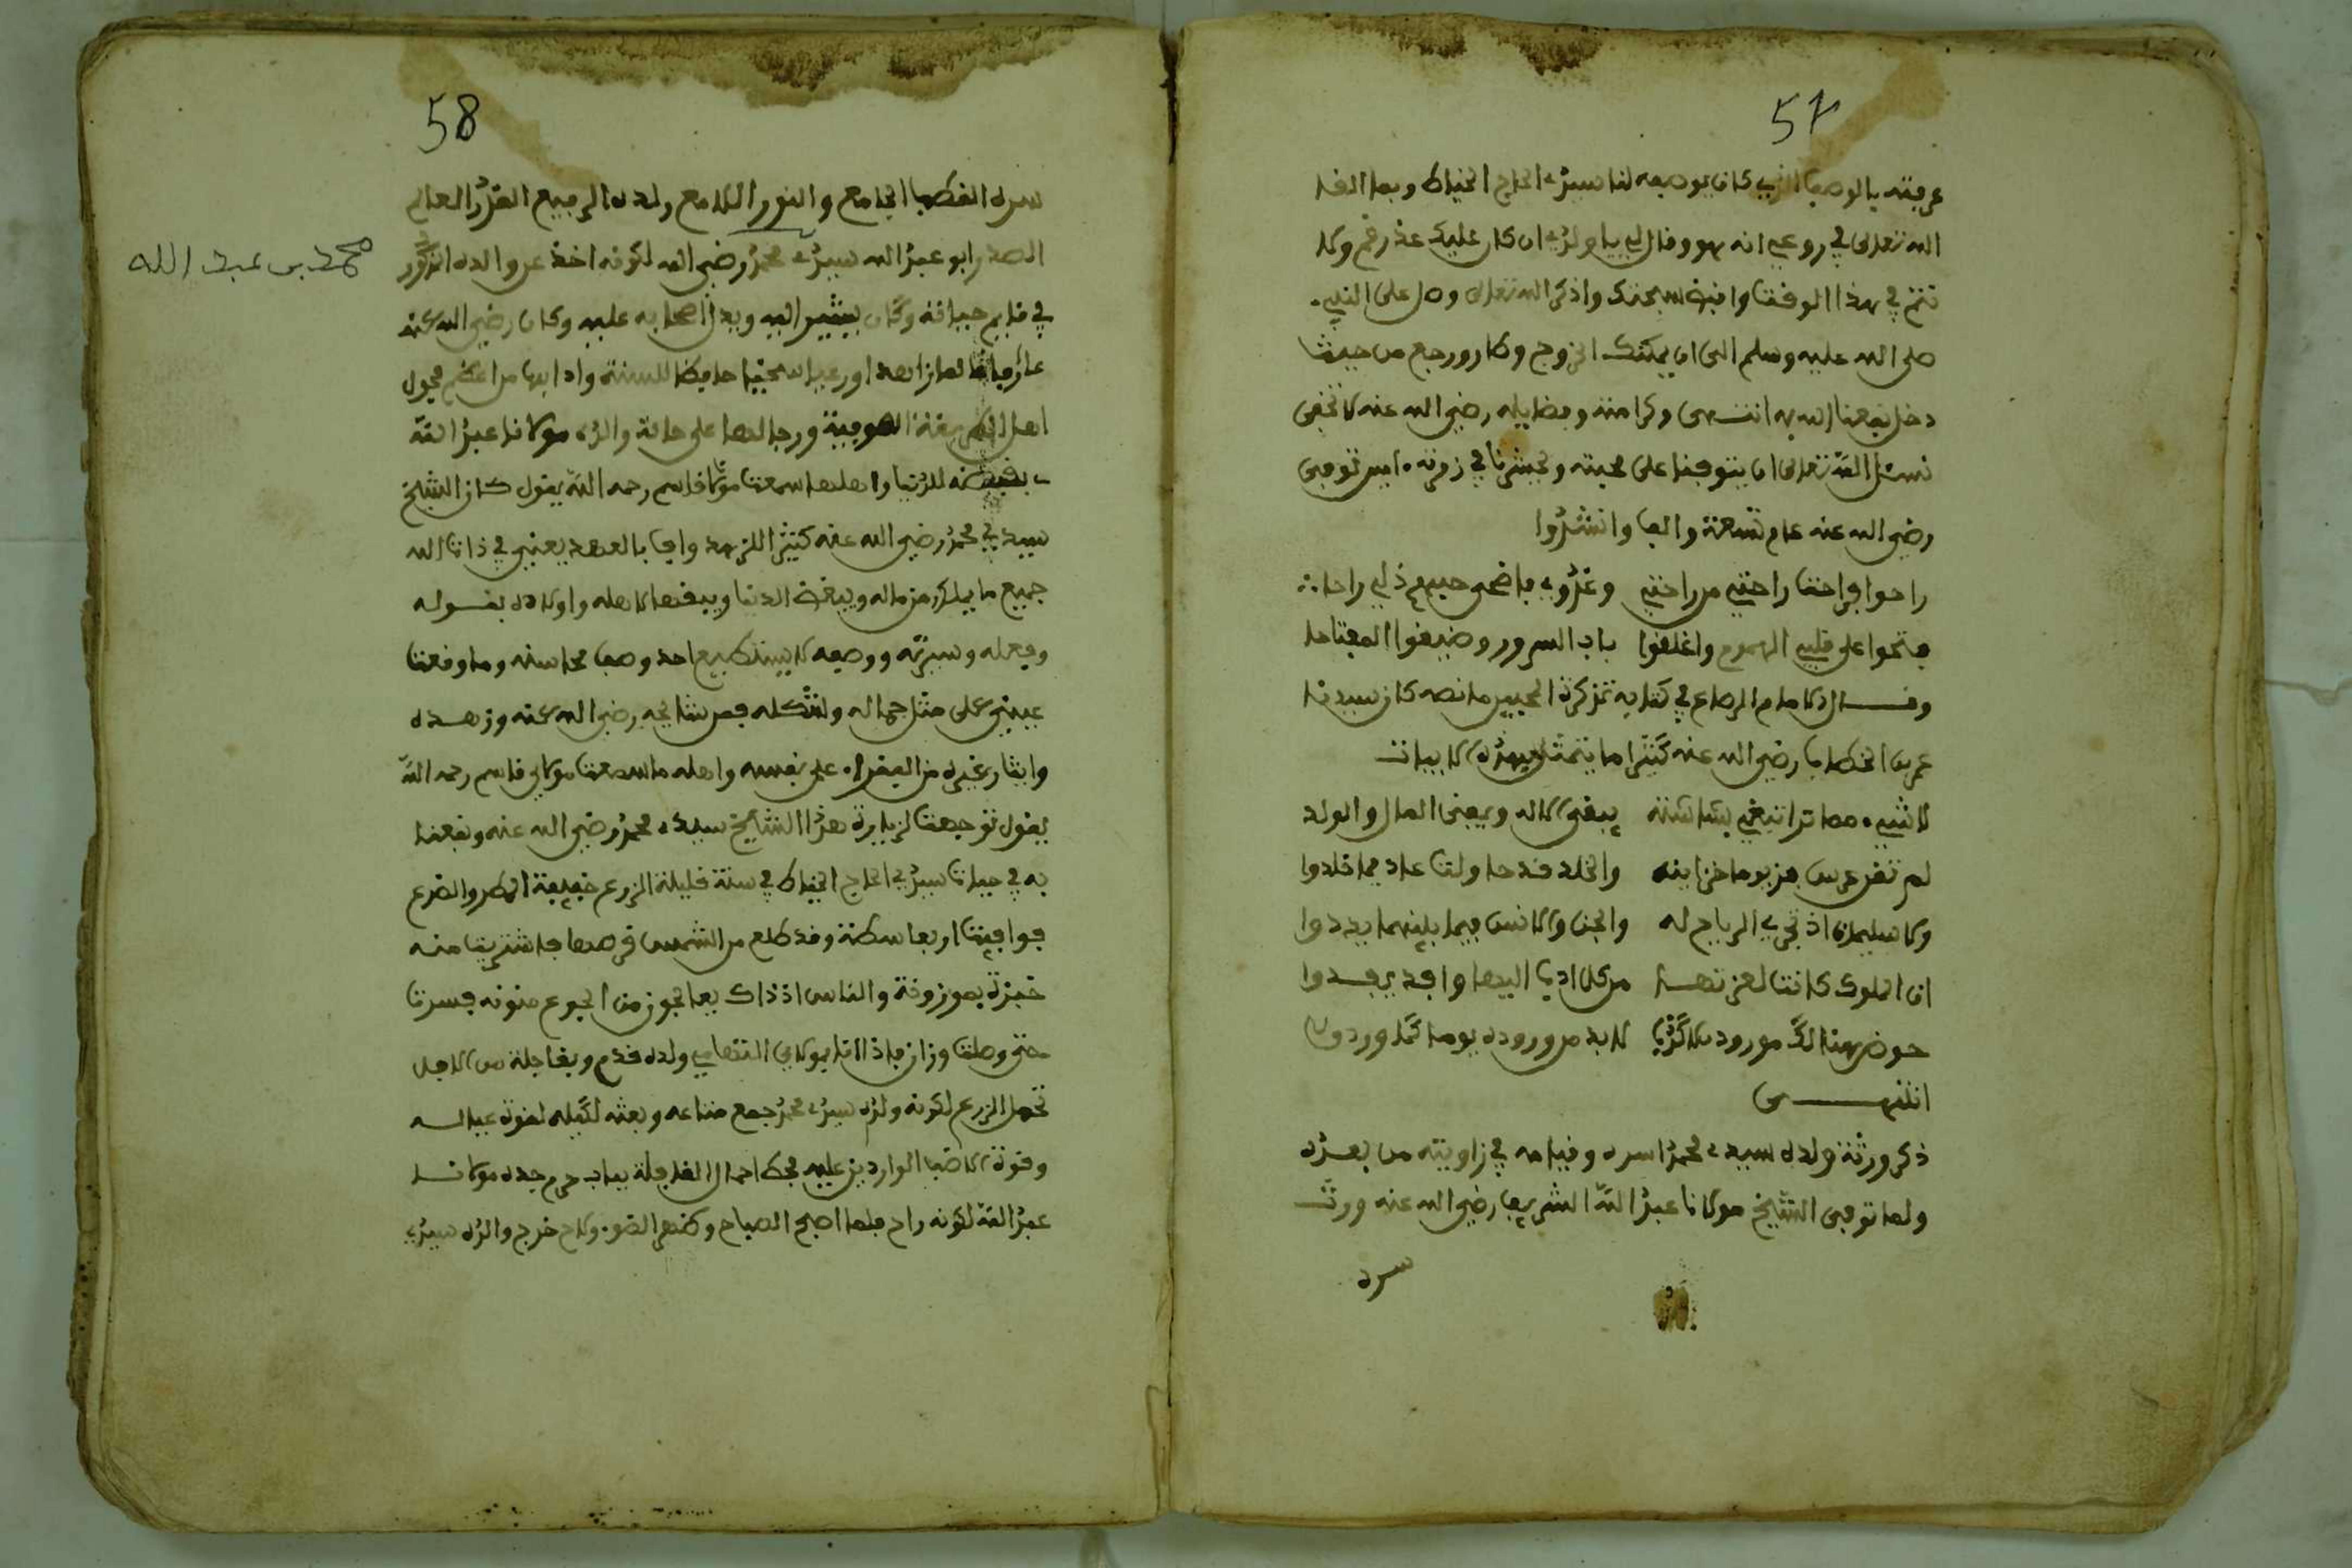 57
عرفته بالوصف الذي كان يوصفه لنا سيدي الحاج الخياط وبما القا
الله تعالى في روعي انه هو وقال لي يا ولدي ان كان عليك عذر قم ولا
تنم في هذا الوقت واقبض سبحتك واذكر الله تعالى وصل على النبي
صلى الله عليه وسلم الى ان يمكنك الخروج وكار ورجع من حيث
دخل نفعنا الله به انتهى وكراماته وفضايله رضي الله عنه لا تخفى
نسئل الله تعالى ان يتوفنا على محبته ويحشرنا في زمرته امين توفى
رضي الله عنه عام تسعة والف وانشدوا
راحوا فراحت راحتي من راحتي وغدوي فاضحى حبهم ذلي راحا
فتحوا على قلبي الهموم واغلقوا باب السرور وضيعوا المفتاحا
وقال الامام الرصاع في كتابه تذكرة المحبين ما نصه كان سيدنا
عمر بن الخطاب رضي الله عنه كثيرا ما يتمثل بهذه الابيات
لا شيء مما ترا تبغي بشاشته يبقى الاله ويفنى المال والولد
لم تغن عن هرمز يوما خزاينه والخلد قد حاولت عاد فما خلدوا
ولا سليمان اذ تجري الرياح له والجن والانس فيما بينهما يردوا
اين الملوك كانت لعزتها من كل ادب اليها وافد يفدوا
حوض هنالك مورود بلا كذب لا بد من وروده يوما كما وردوا
انتهى
ذكر ورثة ولده سيدي محمد اسره وقيامه في زاويته من بعده
ولما توفى الشيخ مولانا عبد الله الشريف رضي الله عنه وورث
سره
58
سره القطب الجامع والنور اللامع ولده الرفيع القدر العالم
الصدر ابو عبد الله سيدي محمد رضي الله لكونه اخذ عن والده المذكور
محمد بن عبد الله
في قايم حياته وكان يشير اليه ويدل اصحابه عليه وكان رضي الله عنه
عالما زاهدا ورعا سخيا حافظا للسنة وادابها من اعظم فحول
اهل الطريقة الصوفية ورجالها على حالة والده مولانا عبد الله
بغضه للدنيا واهلها سمعت مولانا قاسم رحمه الله يقول كان الشيخ
سيدي محمد رضي الله عنه كثير الزهد وافيا بالعهد يعني في ذات الله
جميع ما يملك من ماله ويبغض الدنيا ويبغضها لاهله واولاده بقوله
وفعله وسيرته ووصفه لا يستطيع احد وصف محاسنه وما وقعت
عيني على مثل جماله ولا شكله فمن شمايله رضي الله عنه وزهده
وايثار غيره من الفقراء على نفسه واهله ما سمعت مولاي قاسم رحمه الله
يقول توجهت لزيارة هذا الشيخ سيدي محمد رضي الله عنه ونفعنا
به في حياة سيدي الحاج الخياط في سنة قليلة الزرع خفيفة المطر والضرع
فوافيت اربعا سكنة وقد طلع من الشمس قرصها فاشتريت منه
خبزة بموزونة والناس اذ ذاك بعالجون من الجوع منونه فسرت
حتى وصلت وزان فاذا انا بمولاي التهامي ولده قدم وبقا جلة من الابل
تحمل الزرع لكونه ولده سيدي محمد جمع متاعه وبعثه لكيله لقوة عياله
وقوة الاضياف الواردين عليه فحط احمال القافلة بباب حرم جده مولانا
عبد الله لكونه راح فلما اصبح الصباح وظهر الضوء ولاح خرج والده سيدي